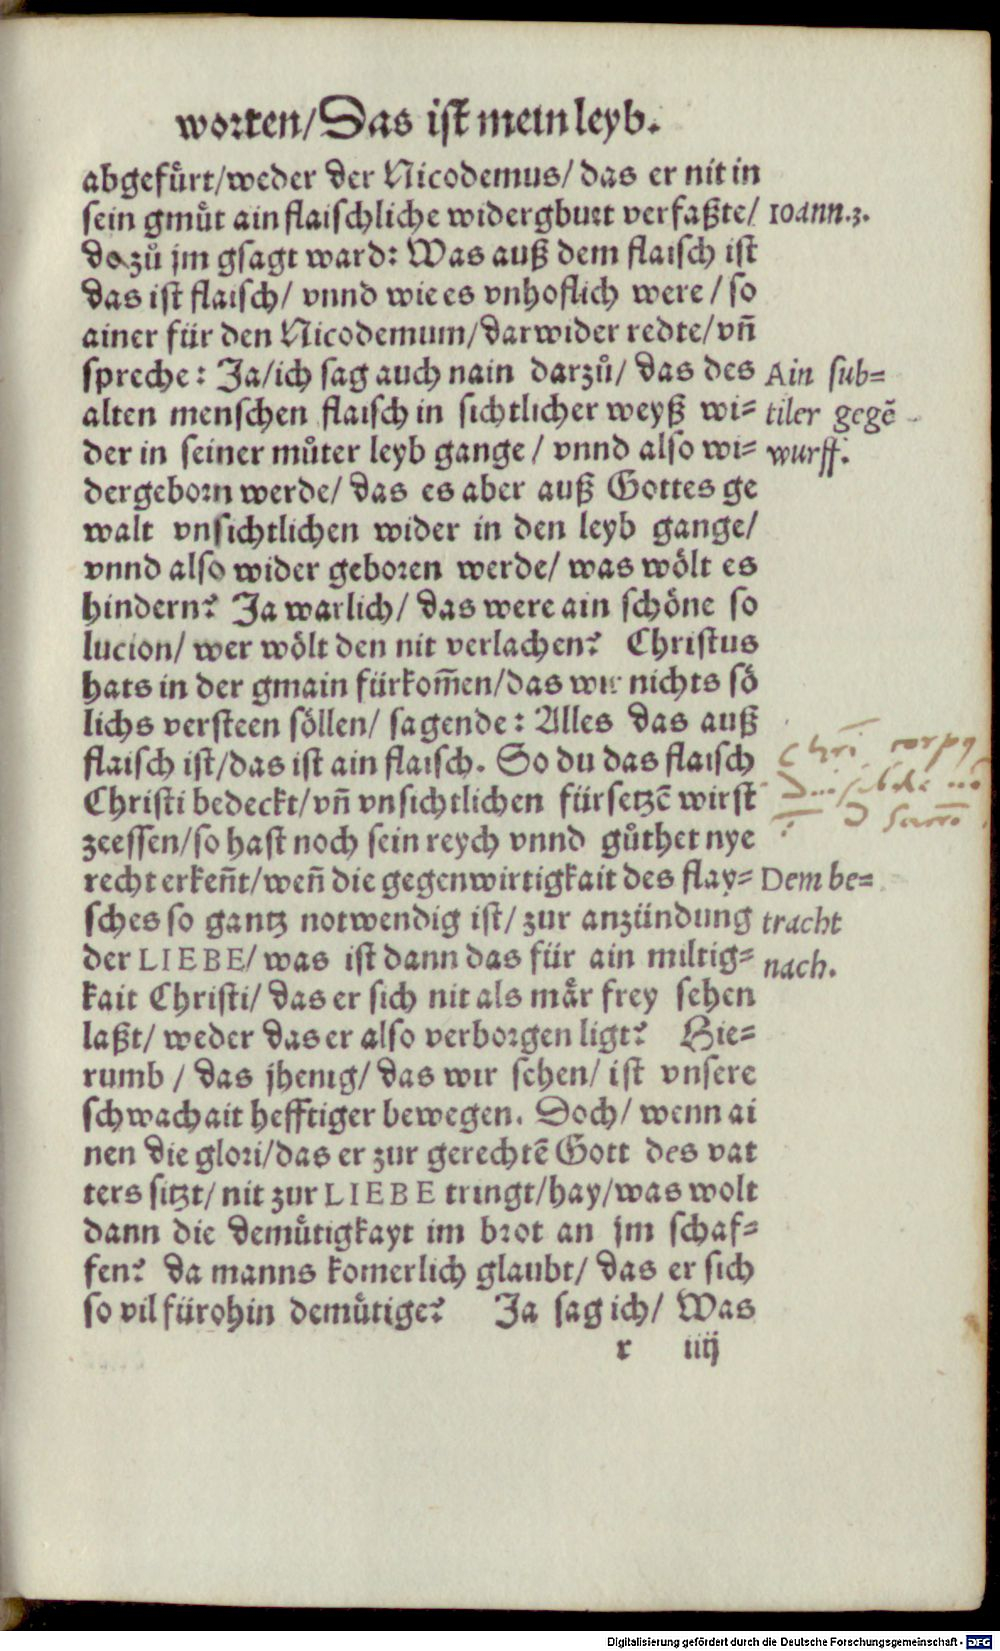 worten/Das ist mein leyb.
abgefuͤrt/weder der Nicodemus/ das er nit in
sein gmuͤt ain flaischliche widergburt verfaßte/
do zuͦ jm gsagt ward: Was auß dem flaisch ist
das ist flaisch/ vnnd wie es vnhoflich were / so
ainer für den Nicodemum/darwider redte/vñ
spreche: Ja/ich sag auch nain darzuͦ/ das des
alten menschen flaisch in sichtlicher weyß wi=
der in seiner muͦter leyb gange / vnnd also wi=
dergeborn werde/ das es aber auß Gottes ge
walt vnsichtlichen wider in den leyb gange/
vnnd also wider geboren werde/ was woͤlt es
hindern? Ja warlich/ das were ain schoͤne so
lucion/ wer woͤlt den nit verlachen? Christus
hats in der gmain fürkom̃en/das wir nichts soͤ
lichs versteen soͤllen/ sagende: Alles das auß
flaisch ist/das ist ain flaisch. So du das flaisch
Christi bedeckt/vñ vnsichtlichen fürsetzē wirst
zeessen/so hast noch sein reych vnnd guͤthet nye
recht erkeñt/weñ die gegenwirtigkait des flay=
sches so gantz notwendig ist/ zur anzündung
der LIEBE/ was ist dann das für ain miltig=
kait Christi/ das er sich nit als maͤr frey sehen
laßt/ weder das er also verborgen ligt? Hie=
rumb / das jhenig/ das wir sehen/ ist vnsere
schwachait hefftiger bewegen. Doch/ wenn ai
nen die glori/das er zur gerechtē Gott des vat
ters sitzt/ nit zur LIEBE tringt/hay/was wolt
dann die demuͤtigkayt im brot an jm schaf=
fen? da manns komerlich glaubt/ das er sich
so vil fürohin demuͤtige? Ja sag ich/ Was
r iiij
Ioann.3.
Ain sub=
tiler gegē
wurff.
Chri corpq
Dem be=
tracht
nach.
Digitalisierung gefördert durch die Deutsche Forschungsgemeinschaft - DFG